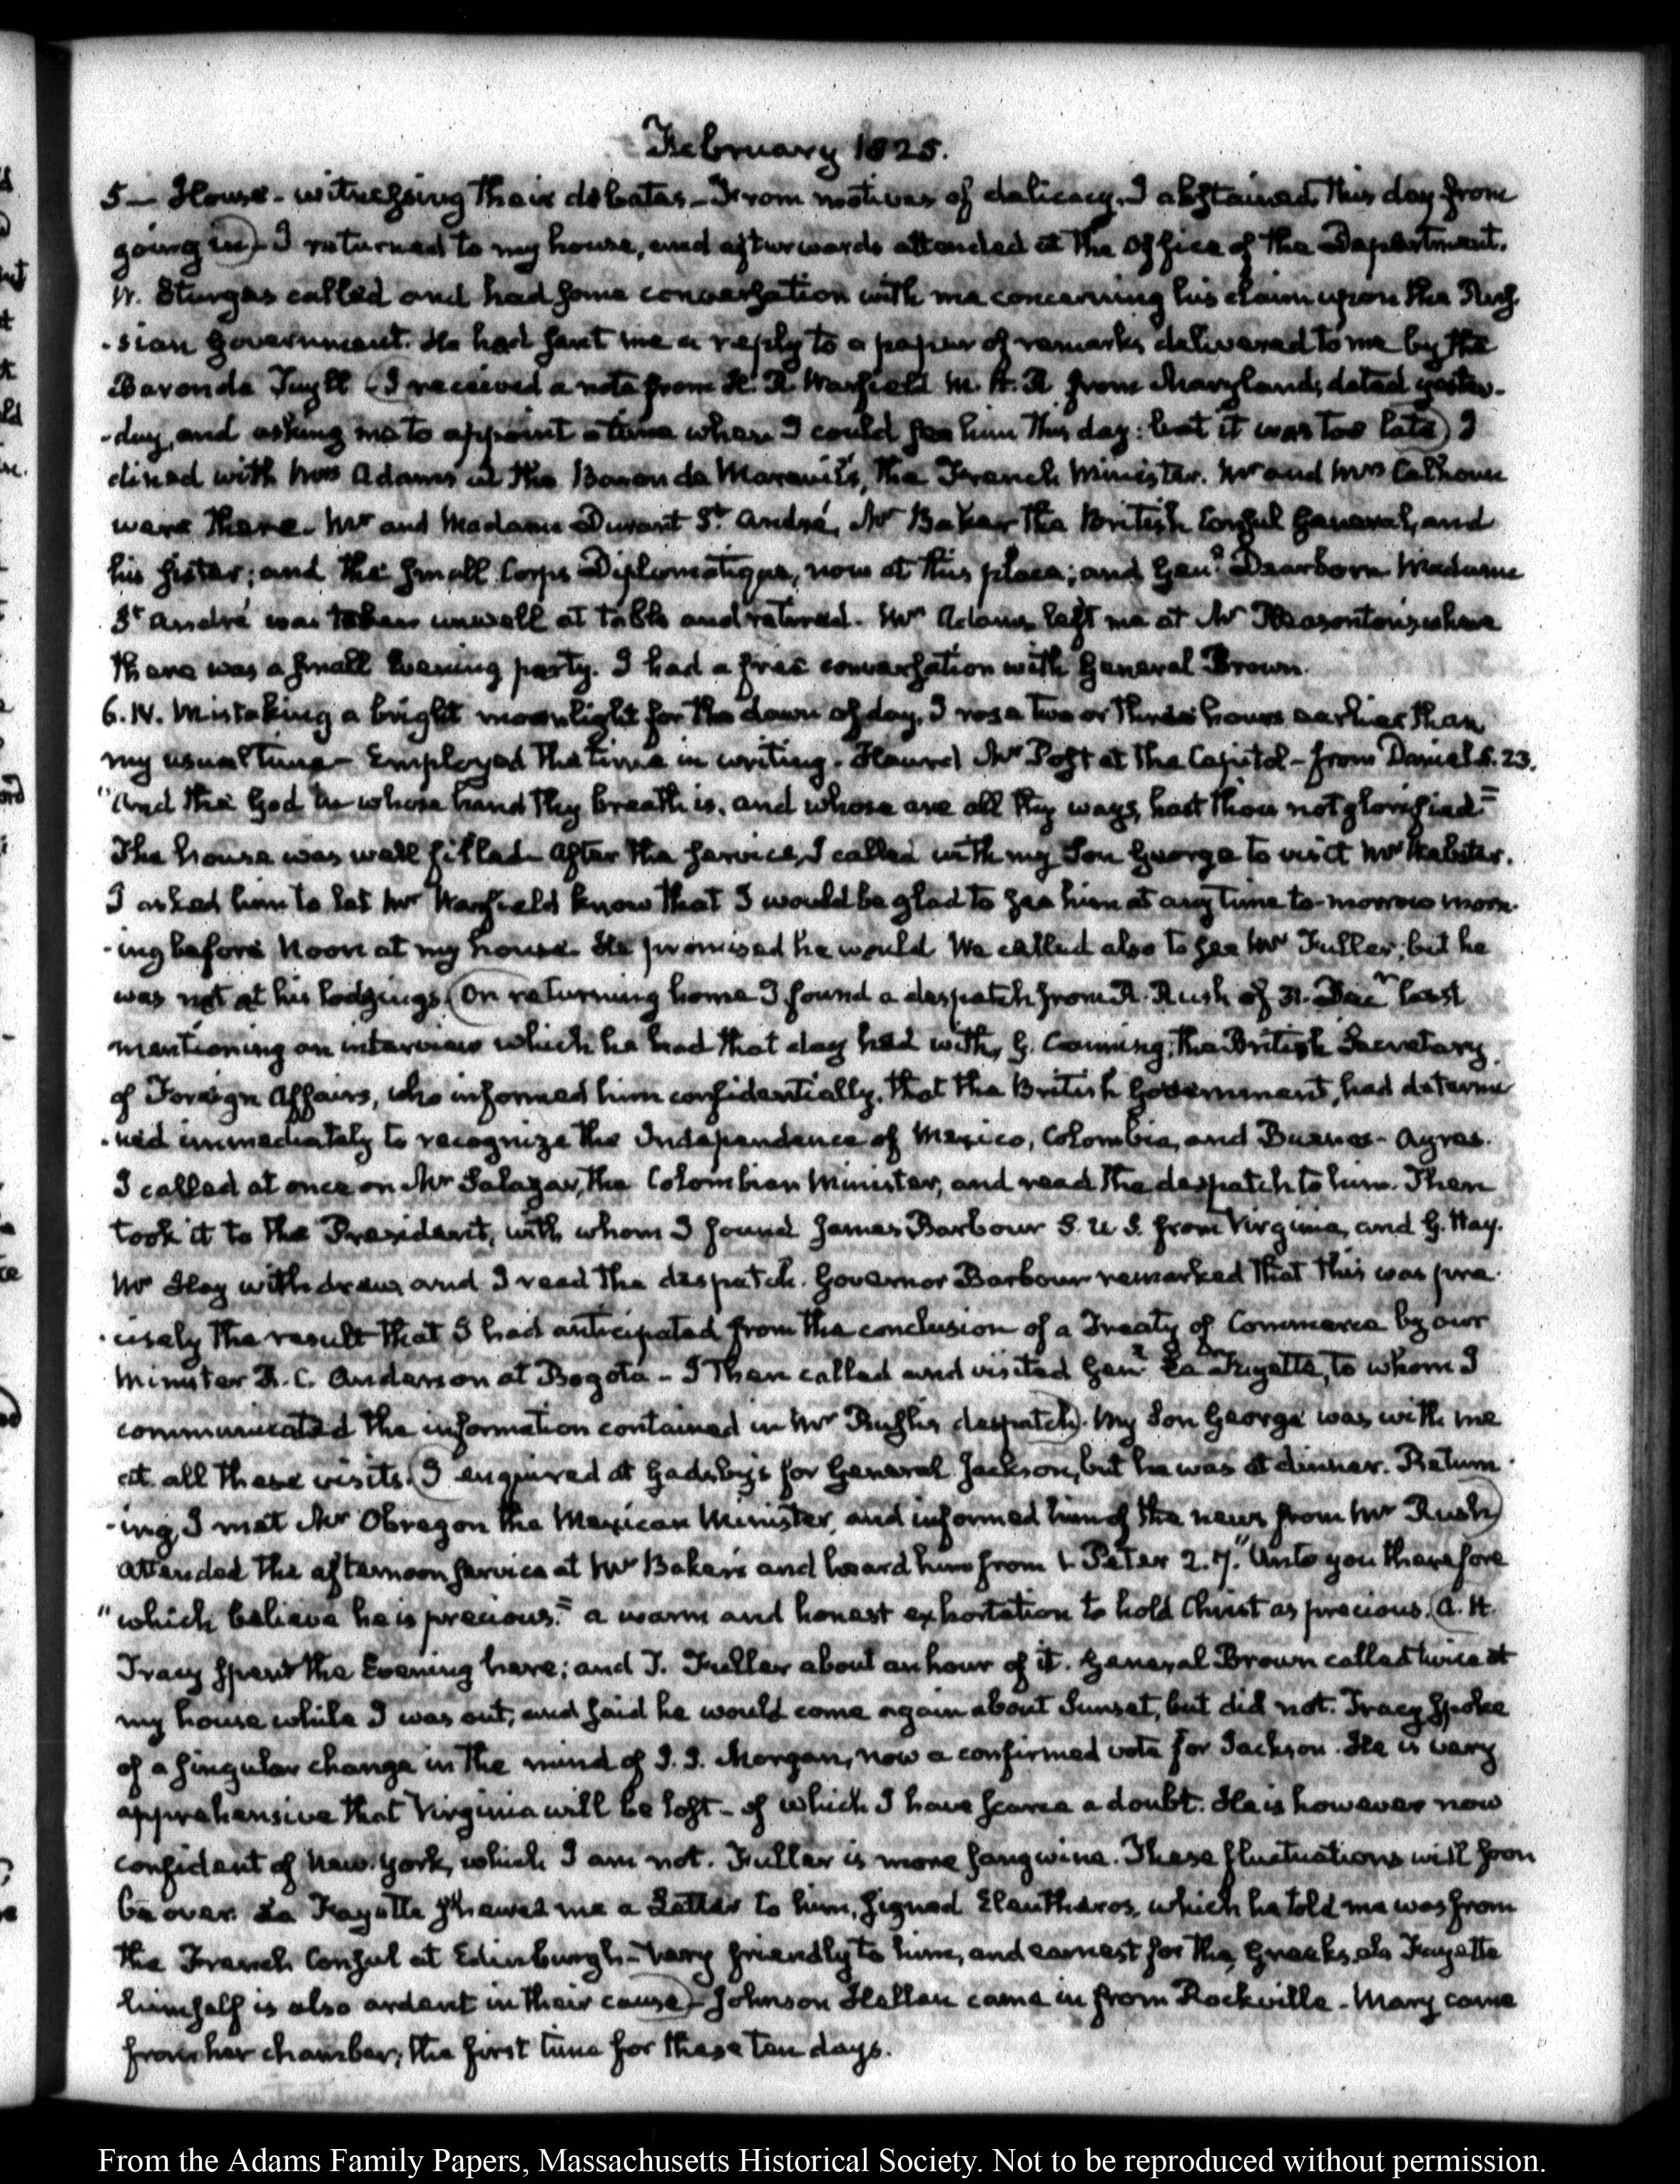 February 1825.
5— House - witnessing their debates - From motives of delicacy, I abstained this day from
going in) - I returned to my house, and afterwards attended at the Office of the Department.
W. Sturges called and had some conversation with me concerning his claim upon the Rus-
-sian Government. He had sent me a reply to a paper of remarks delivered to me by the
Baron de Tuyll (I received a note from H. R. Warfield M. H. R. from Maryland, dated yester-
-day, and asking me to appoint a time when I could see him this day: but it was too late) I
dined with Mrs Adams at the Baron de Mareuil's, the French Minister. Mr and Mrs Calhoun
were there. Mr and Madame Durant St. André, Mr Baker the British Consul General, and
his sister; and the small Corps Diplomatique, now at this place; and Genl. Dearborn. Madame
St André was taken unwell at table and retired. Mrs Adams left me at Mr where
there was a small Evening party. I had a free conversation with General Brown.
6. IV. Mistaking a bright moonlight for the dawn of day, I rose two or three hours earlier than
my usual time - Employed the time in writing. Heard Mr Post at the Capitol - from Daniel 5. 23.
"And the God in whose hand thy breath is, and whose are all thy ways, hast thou not glorified"
The house was well filled. After the service, I called with my Son George to visit Mr Webster.
I asked him to let Mr Warfield know that I would be glad to see him at any time to-morrow morn-
-ing before Noon at my house. He promised he would. We called also to see Mr Fuller, but he
was not at his lodgings. (On returning home I found a despatch from R. Rush of 31. Decr last
mentioning an interview which he had that day had with, G. Canning, the British Secretary
of Foreign Affairs, who informed him confidentially, that the British Government, had determi
-ned immediately to recognize the Independence of Mexico, Colombia, and Buenos-Ayres.
I called at once on Mr Salazar, the Colombian Minister, and read the despatch to him. Then
took it to the President, with whom I found James Barbour S. U S. from Virginia, and G. Hay.
Mr Hay withdrew and I read the despatch. Governor Barbour remarked that this was pre-
-cisely the result that I had anticipated from the conclusion of a Treaty of Commerce by our
Minister R. C. Anderson at Bogota - I then called and visited Genl La Fayette, to whom I
communicated the information contained in Mr Rush's despatch). My Son George was with me
at all these visits. (I enquired at Gadsby's for General Jackson, but he was at dinner. Return-
-ing, I met Mr Obregon the Mexican Minister, and informed him of the news from Mr Rush)
attended the afternoon service at Mr Baker's and heard him from 1. Peter 2. 7. "Unto you therefore
"which believe he is precious." a warm and honest exhortation to hold Christ as precious. (A. H.
Tracy spent the Evening here; and T. Fuller about an hour of it. General Brown called twice at
my house while I was out; and said he would come again about Sunset, but did not. Tracy spoke
of a singular change in the mind of J. J. Morgan, now a confirmed vote for Jackson. He is very
apprehensive that Virginia will be lost - of which I have scarce a doubt. He is however now
confident of New-York, which I am not. Fuller is more sanguine. These fluctuations will soon
be over. La Fayette shewed me a Letter to him, signed Eleutheros, which he told me was from
the French Consul at Edinburgh - Very friendly to him, and earnest for the Greeks. La Fayette
himself is also ardent in their cause) - Johnson Hellen came in from Rockville - Mary came
from her chamber, the first time for these ten days.
From the Adams Family Papers, Massachusetts Historical Society. Not to be reproduced without permission.